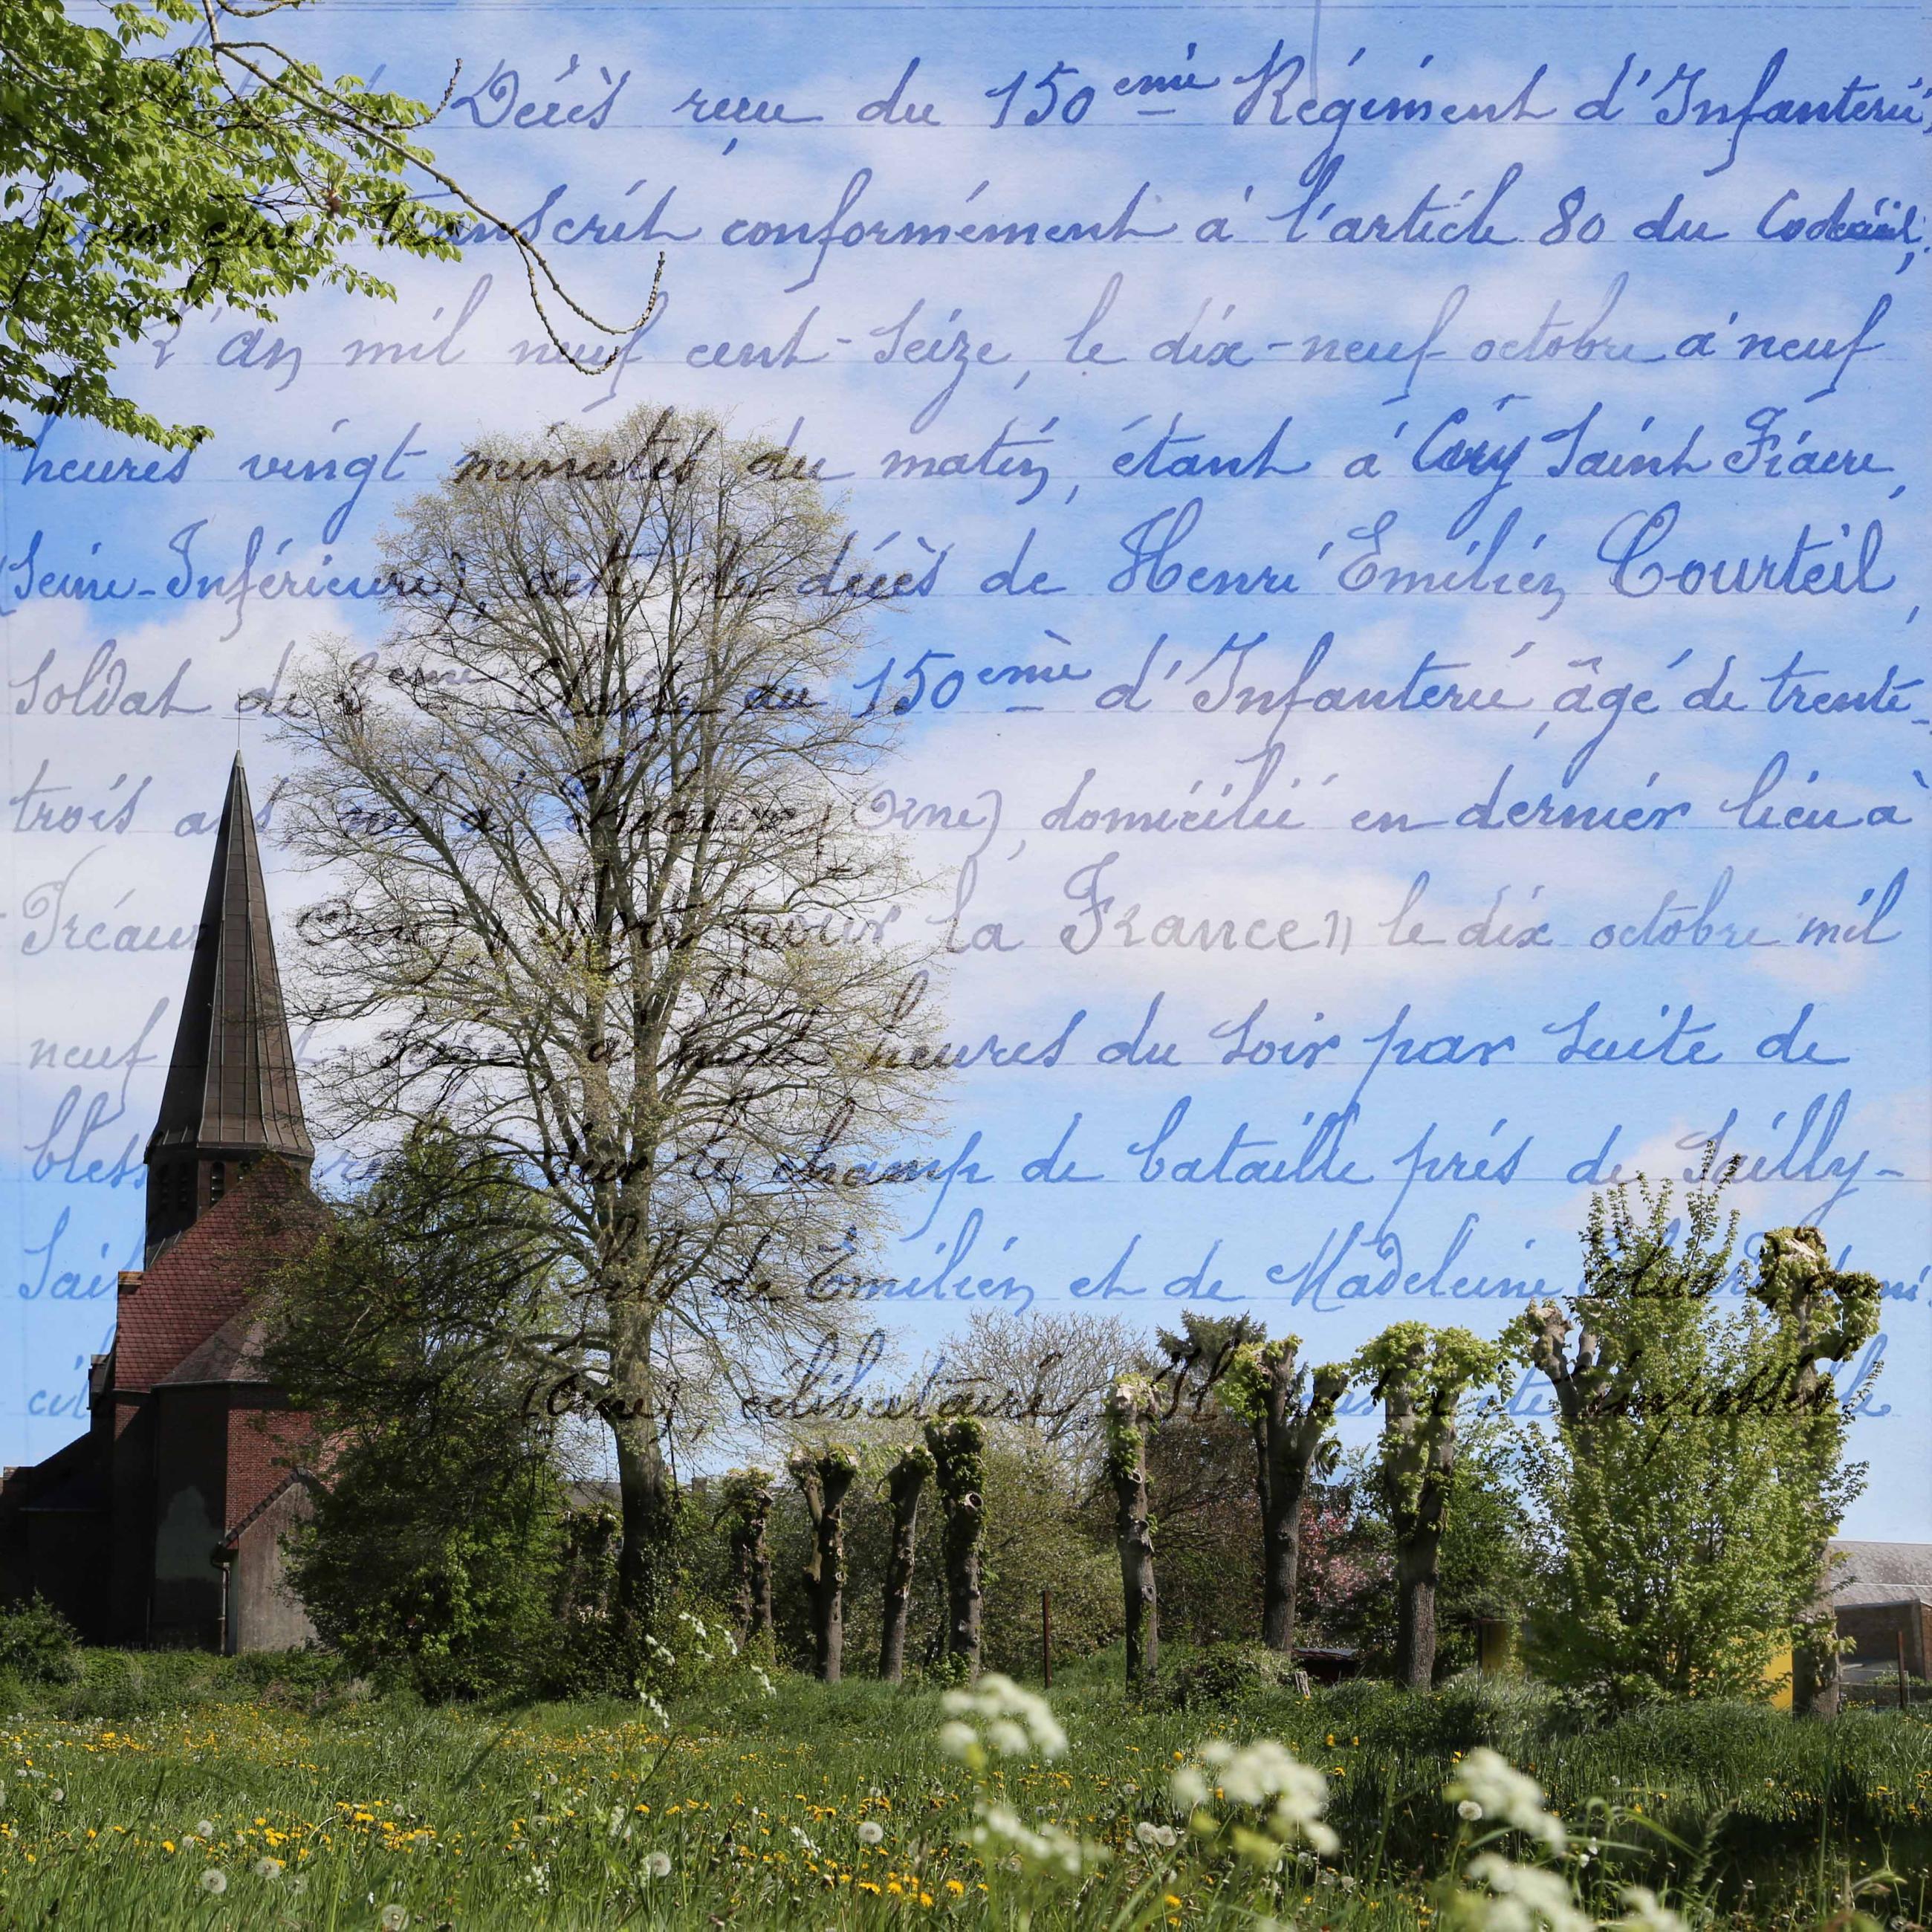 Décès reçu du 150ème Régiment d'Infanterie,
pour être transcrit conformément à l'article 80 du Code civil,
L'an mil neuf cent-seize, le dix-neuf octobre à neuf
heures vingt minutes du matin, étant à Saint Fiacre,
(Seine-Inférieure), acte de décès de Henri Emilien Courteil,
Soldat de 2ème Classe au 150ème d'Infanterie, âgé de trente-
trois ans né à (Orne), domicilié en dernier lieu à
Préaux (Orne), mort pour la France)) le dix octobre mil
neuf seize à heures du soir par suite de
sur le champ de bataille près de Sailly-
fils de Emilien et de Madeleine domi
(Orne), célibataire. Il a été impossible